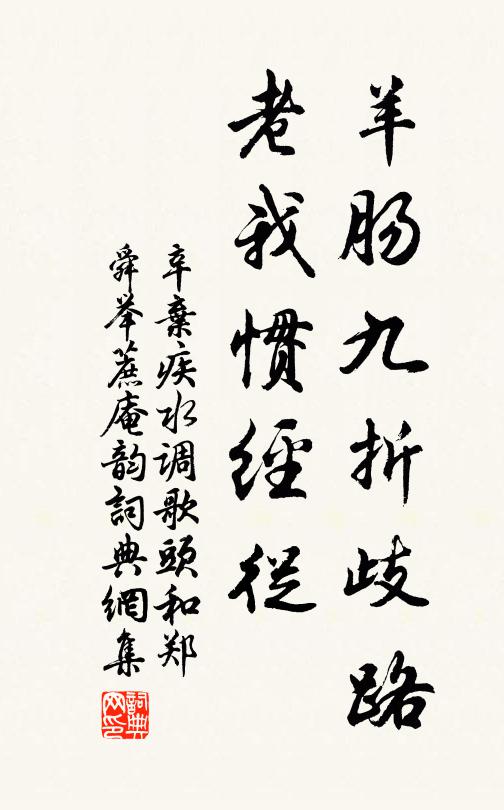 羊肠九折歧路
老我惯經從
辛棄疾水调歌頭和郑
舜举蔗庵韵詞典網集
詞典网印